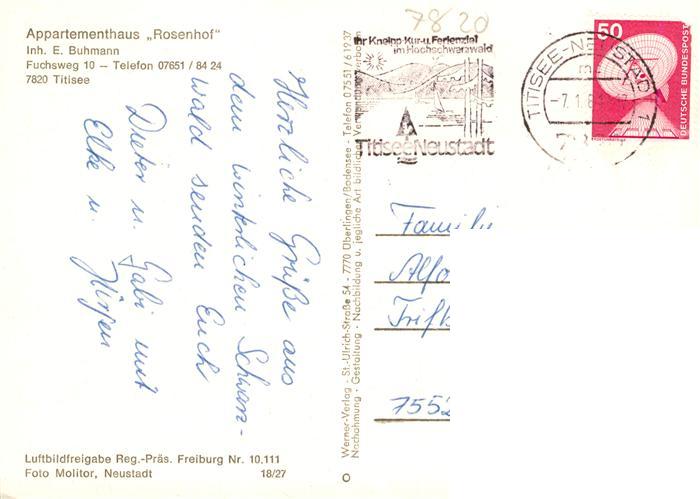 Appartementhaus „Rosenhof"
Inh. E. Buhmann
Fuchsweg 10 — Telefon 07651 / 84 24
7820 Titisee
Herzliche Grüße aus
dem winterlichen Schwarz-
wald senden Euch
Dieter u. Gabi mit
Elke u. Jürgen
Luftbildfreigabe Reg.-Präs. Freiburg Nr. 10,111
Foto Molitor, Neustadt 18/27
Werner-Verlag - St.-Ulrich-Straße 54 - 7770 Überlingen/Bodensee - Telefon 07551 / 6 19 37
Nachahmung - Gestaltung - Nachbildung u. jegliche Art bildlicher Verwendung verboten
78 20
Ihr Kneipp-Kur-u. Ferienziel
im Hochschwarzwald
Titisee-Neustadt
TITISEE-NEUSTADT 1
-7.1.8
50
DEUTSCHE BUNDESPOST
Famili
Alfo
Trift
7552